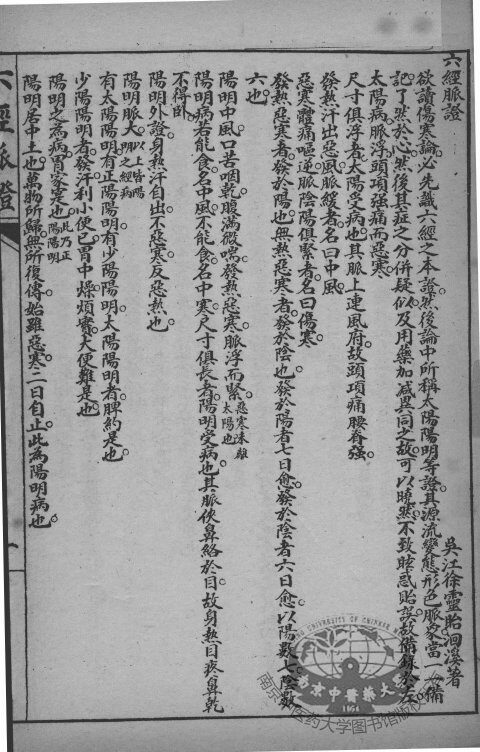 六經脈證
吳江徐靈胎洄溪著
欲讀傷寒論必先識六經之本證然後論中所稱太陽陽明等證其源流變態形色脈象當一一備
記了然於心然後其症之分併疑似及用藥加減異同之故可以曉然不致眩惑貽誤故備錄於左
太陽病脈浮頭項强痛而惡寒
尺寸俱浮者太陽受病也其脈上連風府故頭項痛腰脊强
發熱汗出惡風脈緩者名曰中風
惡寒體痛嘔逆脈陰陽俱緊者名曰傷寒
發熱惡寒者發於陽也無熱惡寒者發於陰也發於陽者七日愈發於陰者六日愈以陽數七陰數
六也
陽明中風口苦咽乾腹滿微喘發熱惡寒脈浮而緊惡寒未離太陽也
陽明病若能食名中風不能食名中寒尺寸俱長者陽明受病也其脈俠鼻絡於目故身熱目疼鼻乾
不得臥
陽明外證身熱汗自出不惡寒反惡熱也
陽明脈大以上皆陽明之經病
有太陽陽明有正陽陽明有少陽陽明太陽陽明者脾約是也
少陽陽明者發汗利小便已胃中燥煩實大便難是也
陽明之為病胃家是也此乃正陽陽明
陽明居中土也萬物所歸無所復傳始雖惡寒二日自止此為陽明病也
六經脈證
一
南京中醫藥大
1954
南京中医药大学图书馆版权所有